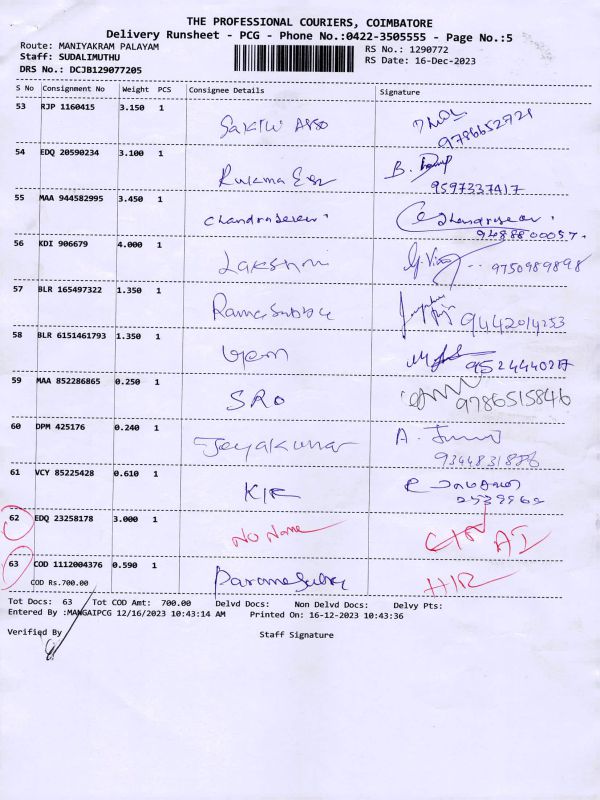 THE PROFESSIONAL COURIERS, COIMBATORE
Delivery Runsheet - PCG - Phone No.:0422-3505555 - Page No.:5
Route: MANIYAKRAM PALAYAM
RS No.: 1290772
Staff: SUDALIMUTHU
RS Date: 16-Dec-2023
DRS No.: DCJB129077205
S No Consignment No Weight PCS Consignee Details Signature
53 RJP 1160415 3.150 1
Sakthi Asso
9786652721
54 EDQ 20590234 3.100 1
Rukma
B.
9597337417
55 MAA 944582995 3.450 1
Chandrasekar.
Chandrasekar.
9488800057.
56 KDI 906679 4.000 1
Lakshmi
9750989898
57 BLR 165497322 1.350 1
9442014253
58 BLR 6151461793 1.350 1
59 MAA 852286865 0.250 1
SRO 9786515846
60 DPM 425176 0.240 1
Jeyakumar A.
9344831886
61 VCY 85225428 0.610 1
62 EDQ 23258178 3.000 1
No Name
63 COD 1112004376 0.590 1
COD Rs.700.00
Tot Docs: 63 Tot COD Amt: 700.00 Delvd Docs: Non Delvd Docs: Delvy Pts:
Entered By :MANGAIPCG 12/16/2023 10:43:14 AM Printed On: 16-12-2023 10:43:36
Verified By Staff Signature